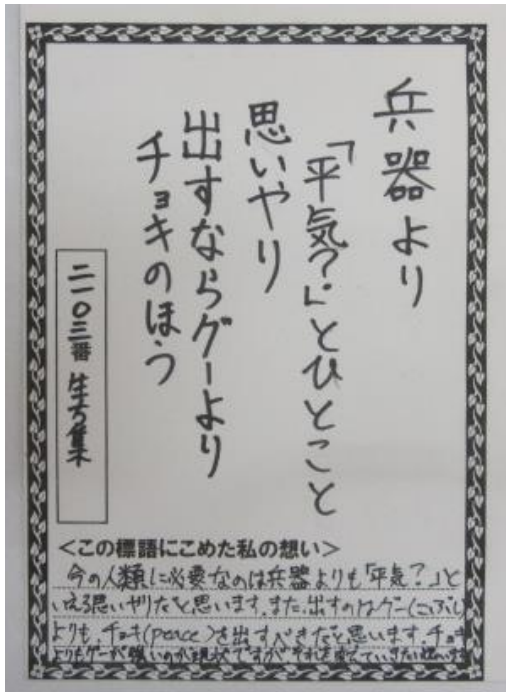 兵器より
「平気?」とひとこと
思いやり
出すならグーより
チョキのほう
二一〇三番 生方集
<この標語にこめた私の想い>
今の人類に必要なのは兵器よりも「平気?」と
いえる思いやりだと思います。また、出すのはグー(こぶし)
よりも、チョキ(peace)を出すべきだと思います。チョキ
よりもグーが強いのが現状ですがそれを変えていきたい